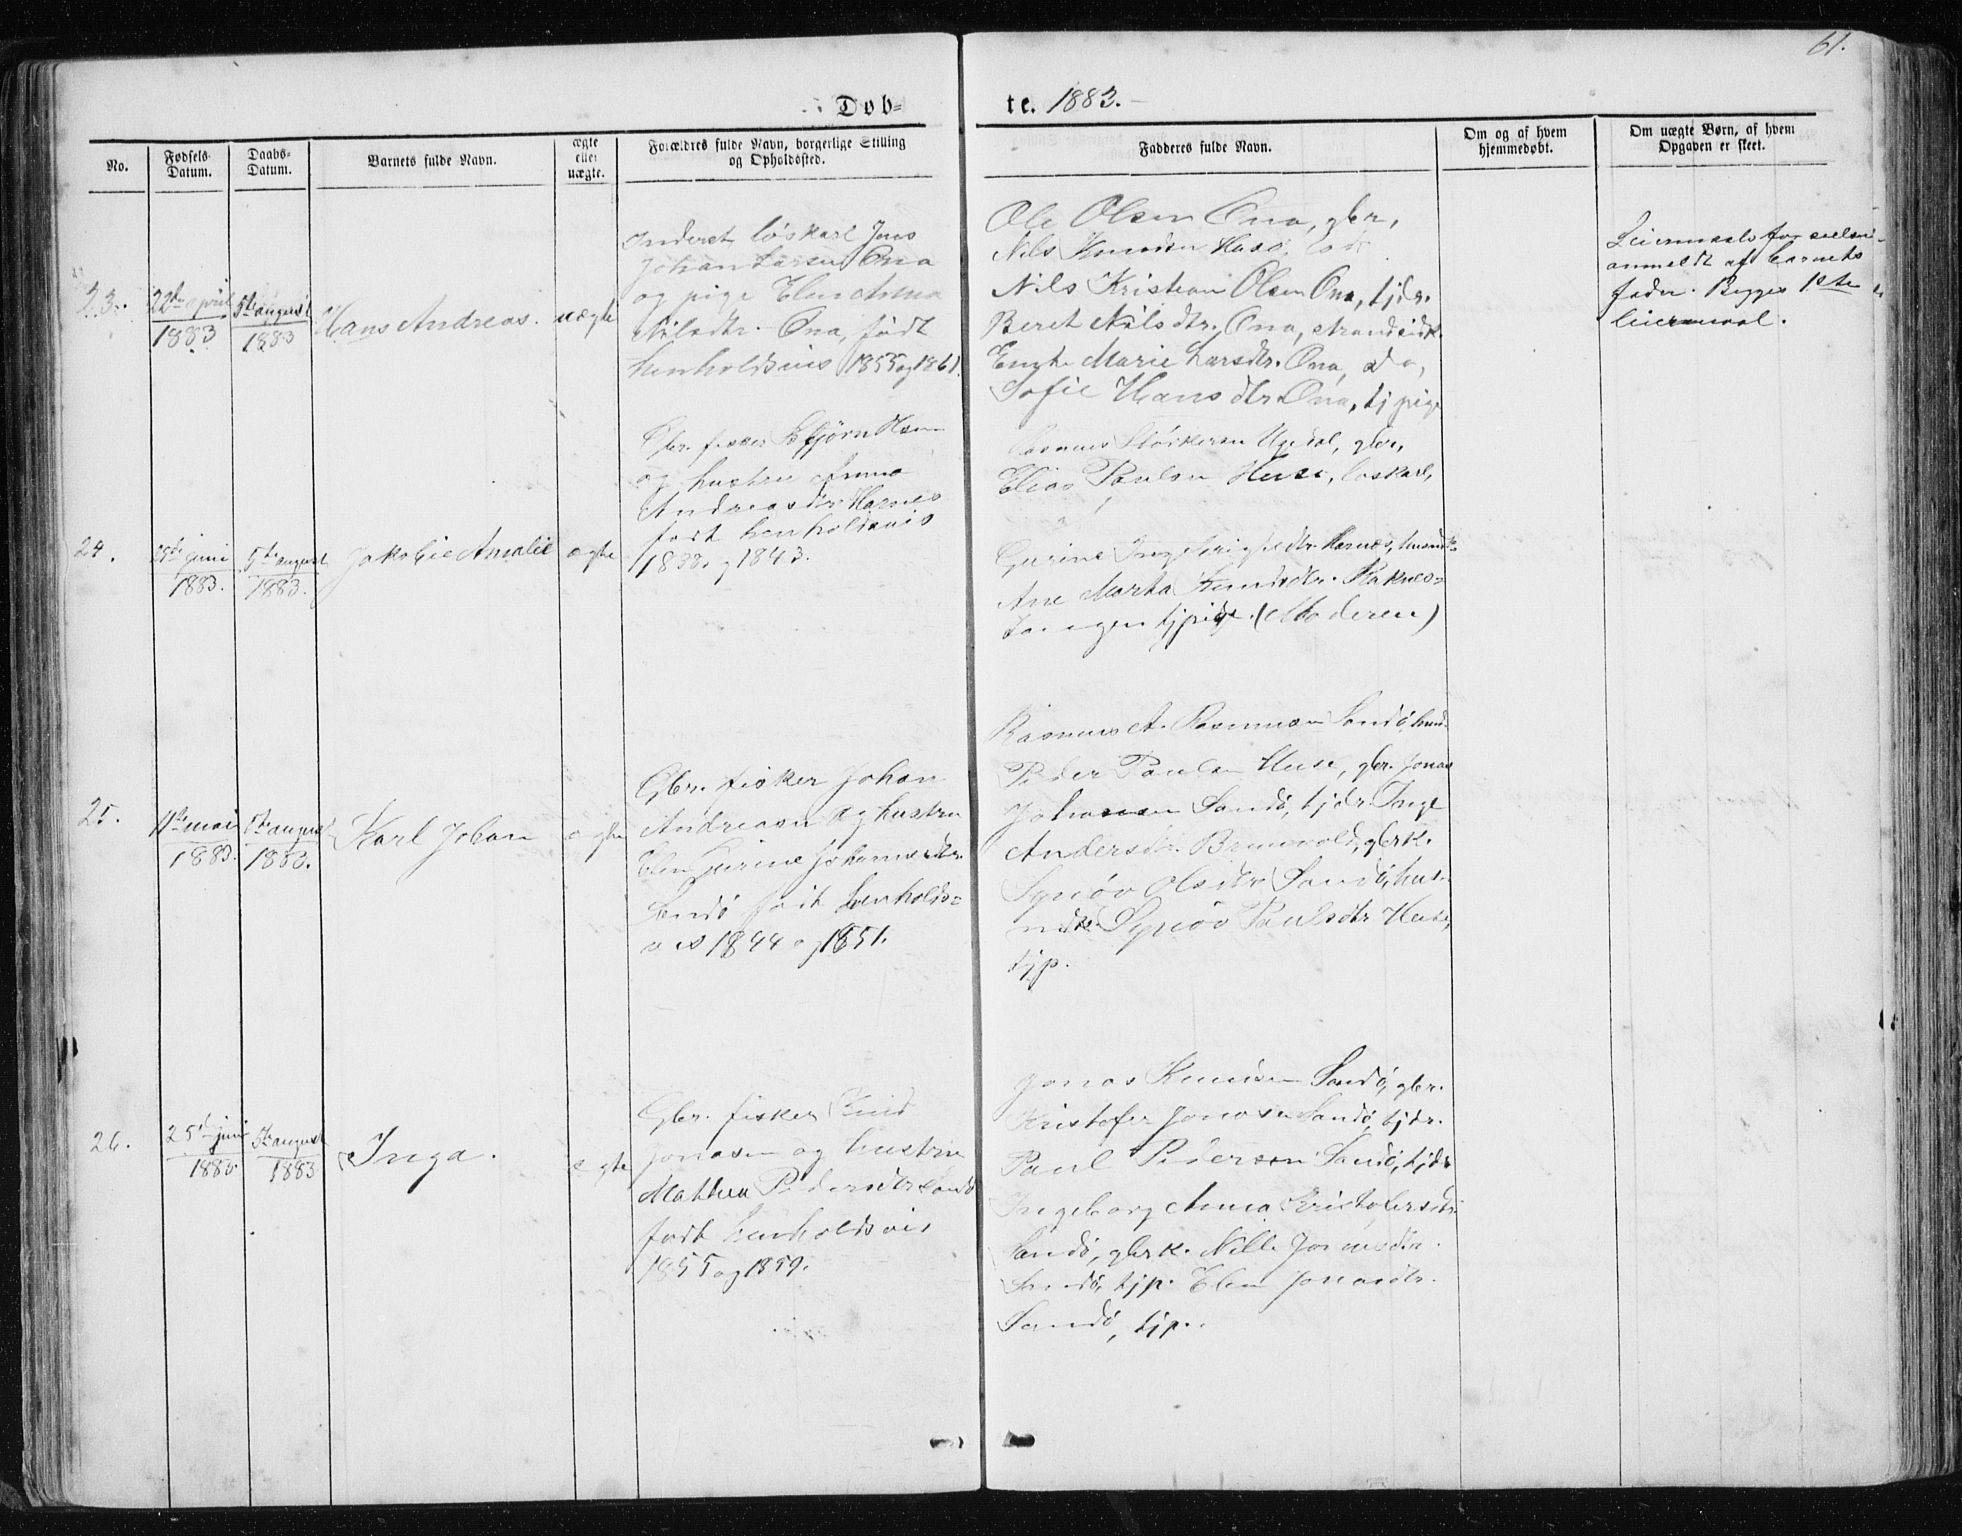 61.
Døb=
te. 1883.
No.
Fødsels-
Datum.
Daabs-
Datum.
Barnets fulde Navn.
ægte
eller
uægte.
Forældres fulde Navn, borgerlige Stilling
og Opholdssted.
Fadderes fulde Navn.
Om og af hvem
hjemmedøbt.
Om uægte Børn, af hvem
Opgaven er skeet.
23.
22de april
1883
5te august
1883
Hans Andreas.
uægte
Inderst løskarl Jens
Johan Larsen Ona
og pige Elen Anna
Nilsdtr. Ona, født
henholdsvis 1855 og 1861.
Ole Olsen Ona, gbr,
Nils Knudsen Husø,
Nils Kristian Olsen Ona, tjdr.
Beret Nilsdtr. Ona,
Marie Larsdtr. Ona, do,
Sofie Hansdtr Ona, tj pige
Leiermaals
anmeldt af barnets
fader. Begges 1ste
leiermaal.
24.
juni
1883.
5te august
1883.
Jakobie Amalie
ægte
Gbr. fisker
og hustru Anna
Andreasdtr Harnes
født henholdsvis
og 1843.
Rasmus Størkersen Ugedal, gbr,
Elias Paulsen Huse, løskarl,
Gurine Ingebrigtsdtr Harnes,
Ane Marta Knudsdtr. Raknes=
tangen tjpige. (Moderen)
25.
11te mai
1883.
5te august
1883.
Karl Johan
ægte
Gbr. fisker Johan
Andreasn og hustru
Elen Gurine Johannesdtr.
Sandø født henholds=
vis 1844 og 1851.
Rasmus A. Rasmusen Sandø,
Peder Paulsen Huse, gbr. Jonas
Johansen Sandø, tjdr. Inge
Andersdtr. Brunvold, gbrk.
Synøv Olsdtr Sandø, hus=
mdk. Synøv Paulsdtr Huse,
tjp.
26.
25de juni
1883.
5te august
1883
Inga.
ægte
Gbr. fisker Knud
Jonasen og hustru
Mathea Pedersdtr Sandø
født henholdsvis
1855 og 1859.
Jonas Knudsen Sandø, gbr.
Kristofer Jonasen Sandø, tjdr.
Paul Pedersen Sandø, tjdr
Ingeborg Anna Kristofersdtr
Sandø, gbrk. Nille Jonasdtr.
Sandø, tjp. Elen Jonasdtr.
Sandø, tjp.